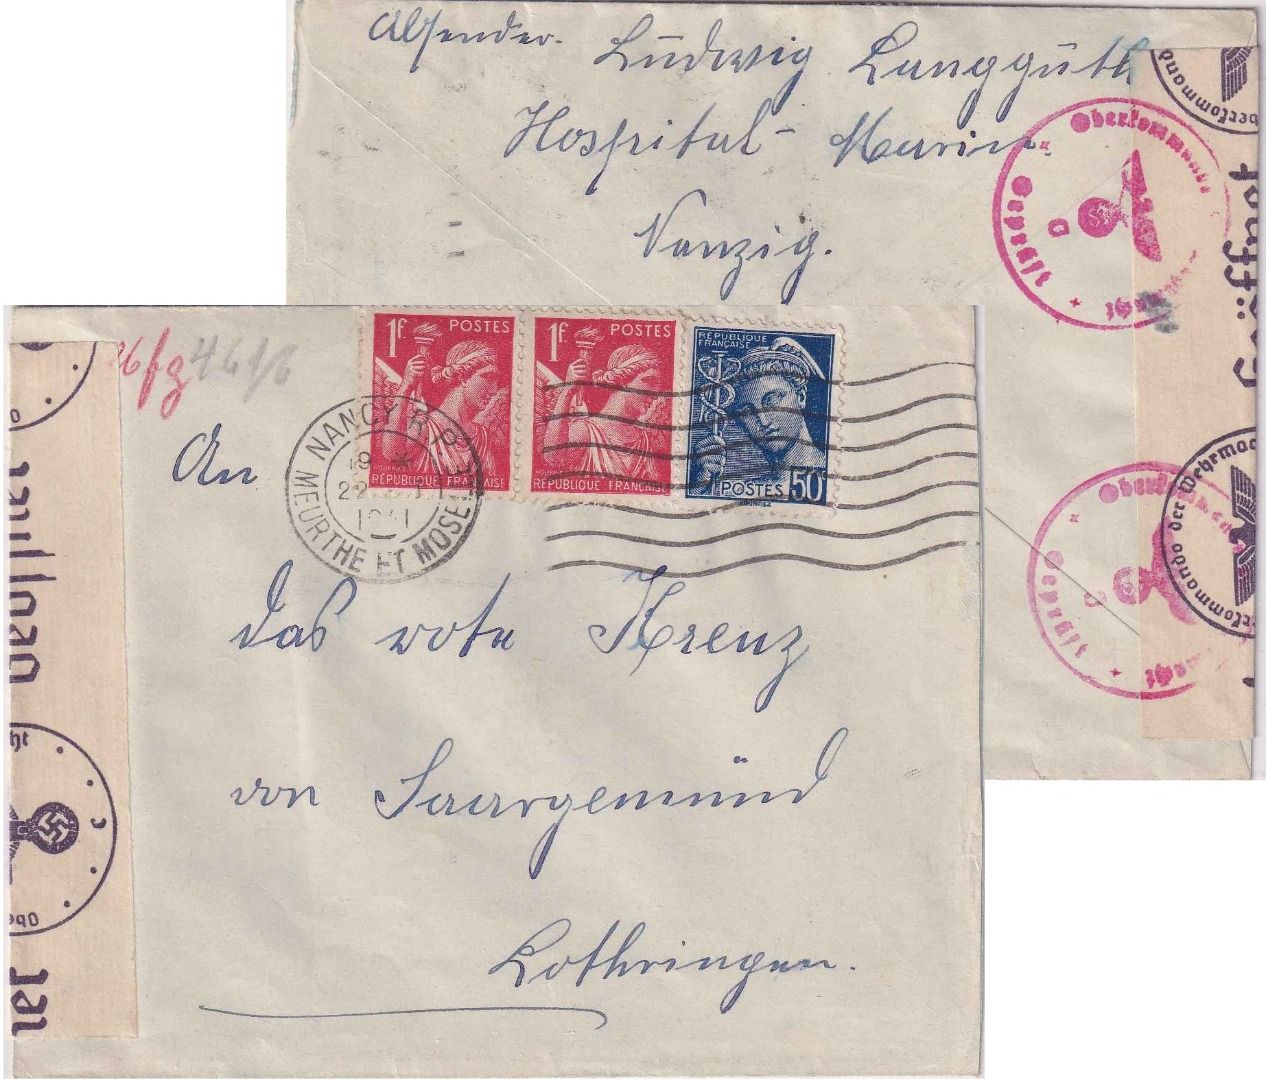 Absender. Ludwig Langguth
Hospital - Marin.
Nanzig.
Oberkommando
Geprüft
Oberkommando
Geprüft
Oberkommando der Wehrmacht
Geöffnet
1F POSTES
RÉPUBLIQUE FRANÇAISE
1F POSTES
RÉPUBLIQUE FRANÇAISE
RÉPUBLIQUE
FRANÇAISE
POSTES 50F
NANCY R.P.
18 *
1941
MEURTHE ET MOSELLE
An
das rote Kreuz
von Saargemünd
Lothringen.